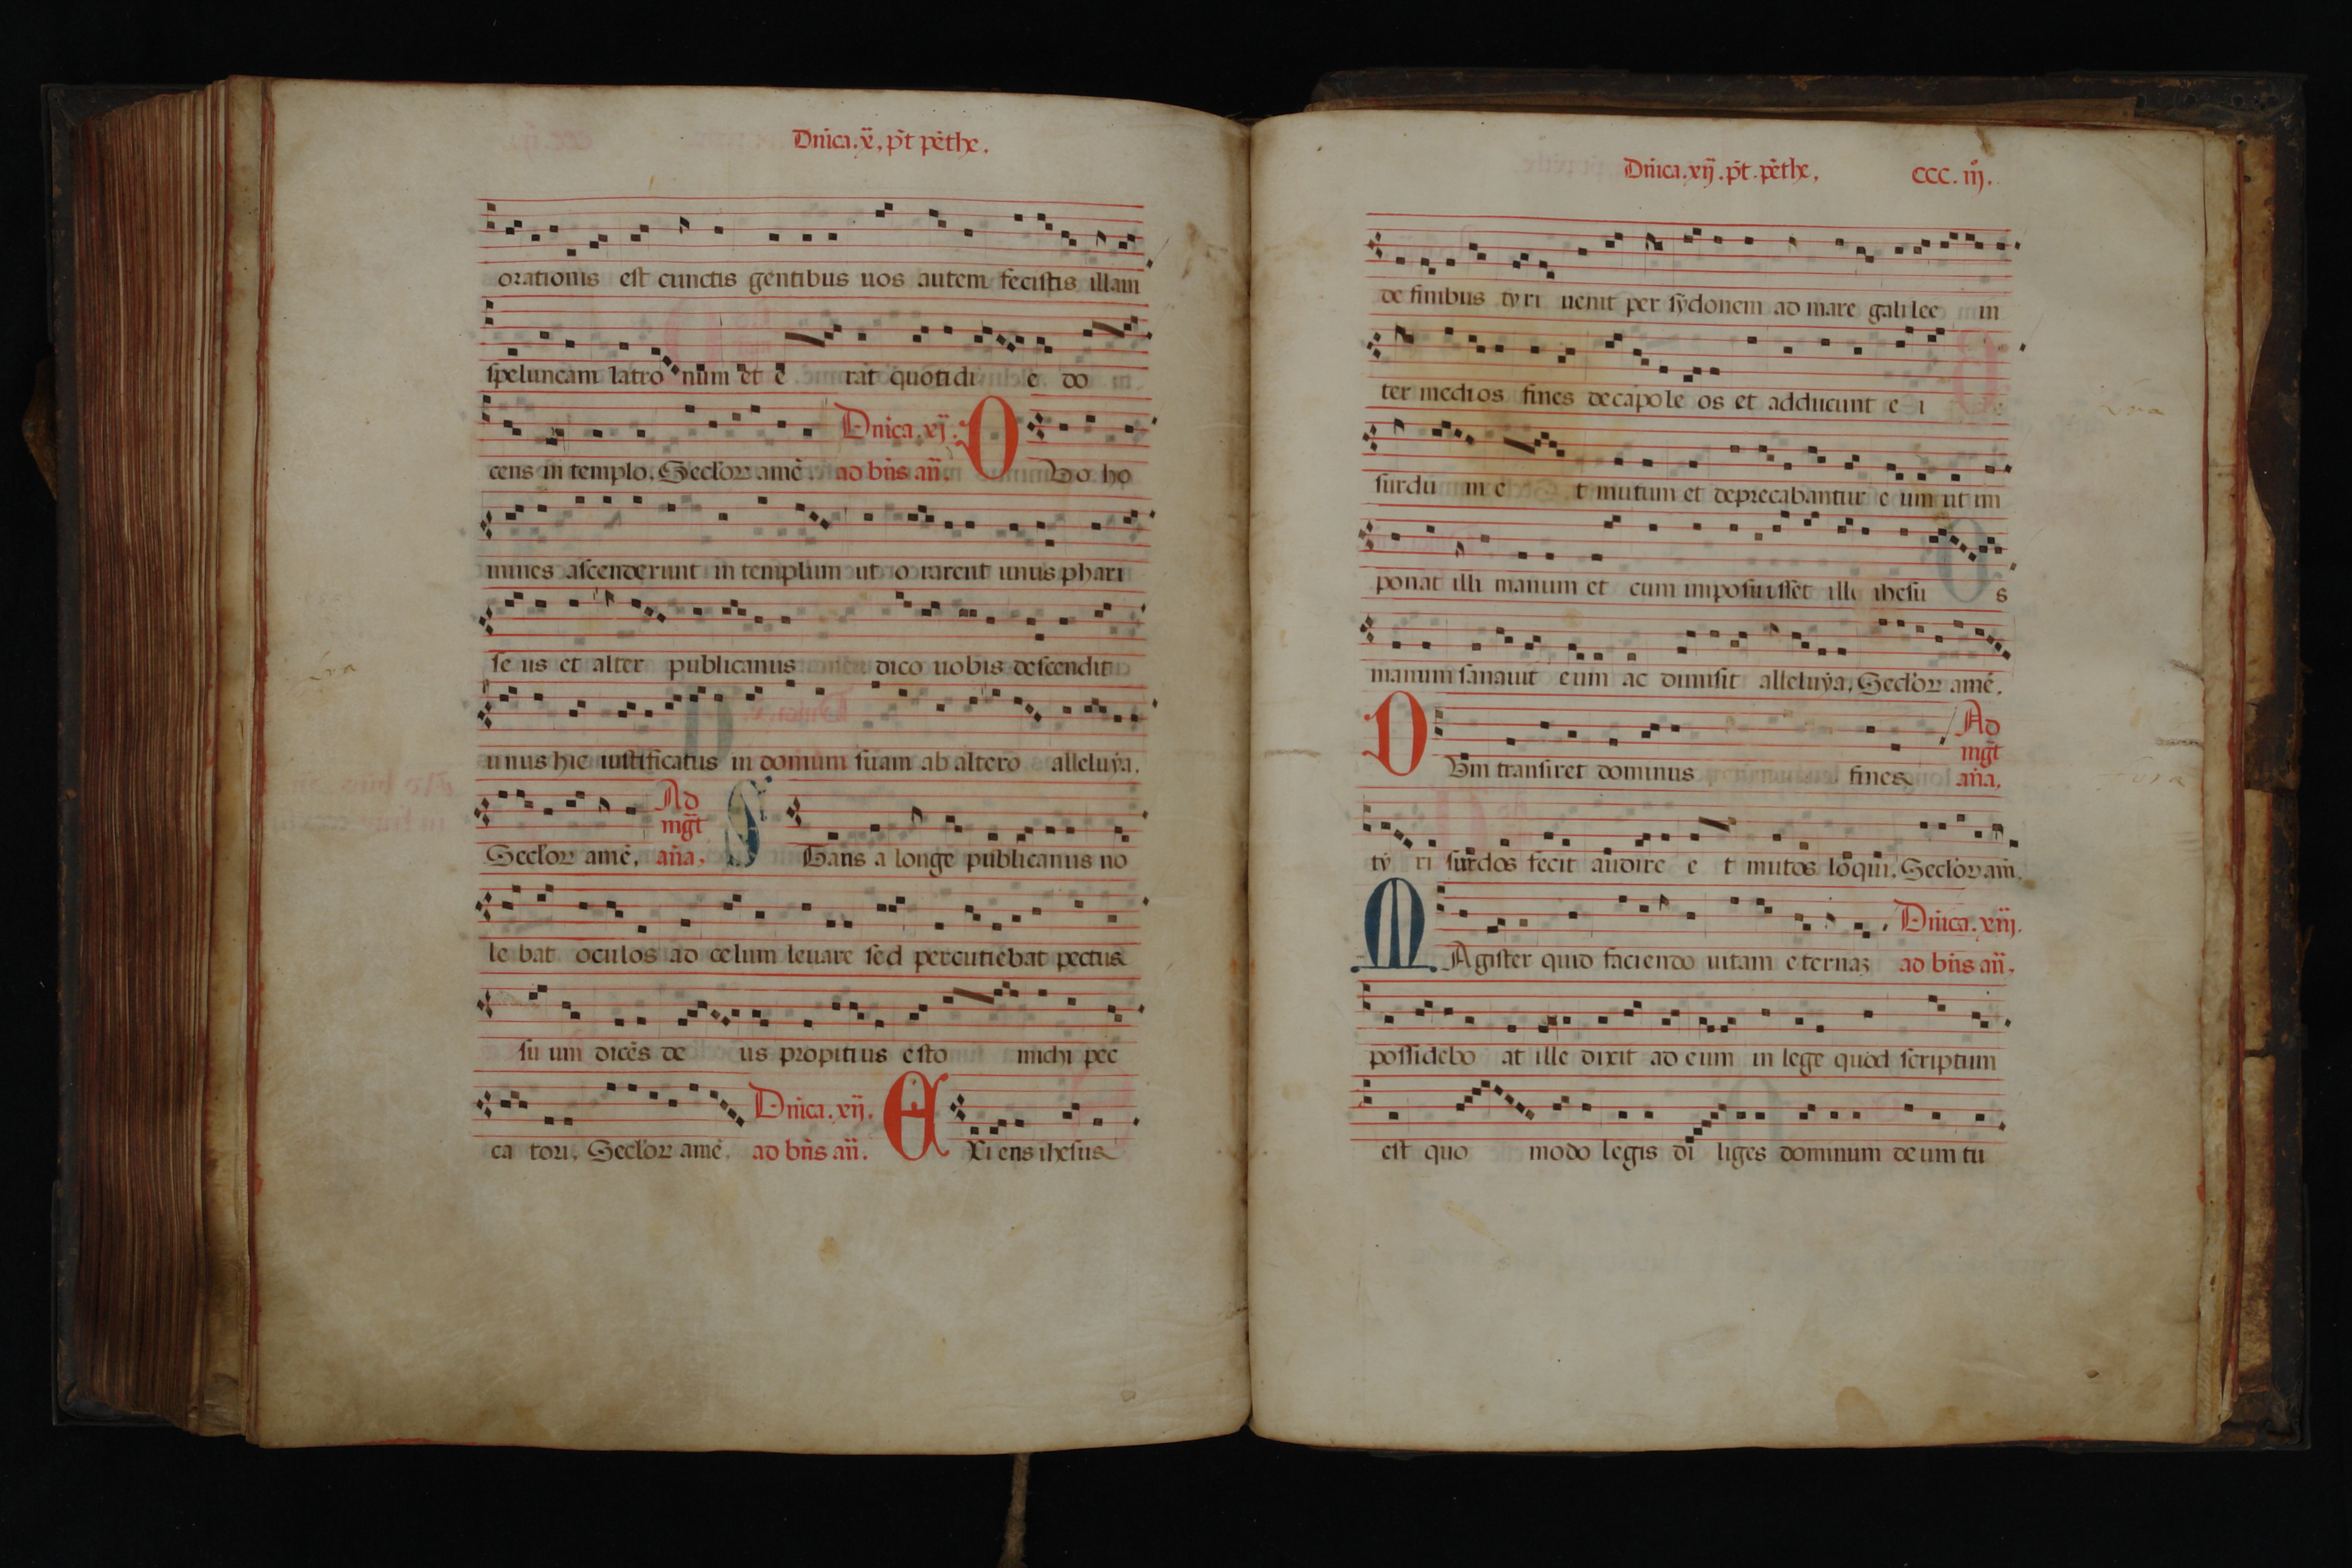 Dnica.x., pt pethe.
orationis est cunctis gentibus uos autem fecistis illam
speluncam latro num et e rat quotidi e do
cens in templo. Seclorz amē. ad bñs añ. Dvo ho
Dnica.xj.
mines ascenderunt in templum ut o rarent unus phari
se us et alter publicanus dico uobis descendit
unus hic iustificatus in domum suam ab altero alleluya.
Ad
mgt
Seclorz amē. aña. Stans a longe publicanus no
le bat oculos ad celum leuare sed percutiebat pectus
su um dicēs de us propitius esto michi pec
Dnica.xij.
ca tori. Seclorz amē. ad bñs añ. EXi ens ihesus
Dnica.xij.pt.pethe.
ccc.iij.
de finibus tyri uenit per sydonem ad mare galilee in
ter medios fines decapole os et adducunt e i
surdu m e t mutum et deprecabantur e um ut im
ponat illi manum et cum imposuisset ille ihesu s
manum sanauit eum ac dimisit alleluya. Seclorz amē.
Ad
mgt
CVm transiret dominus fines aña.
ty ri surdos fecit audire e t mutos loqui. Seclorz am.
Dnica.xiij.
MAgister quid faciendo uitam eternaz ad bñs añ.
possidebo at ille dixit ad eum in lege quod scriptum
est quo modo legis di liges dominum deum tu